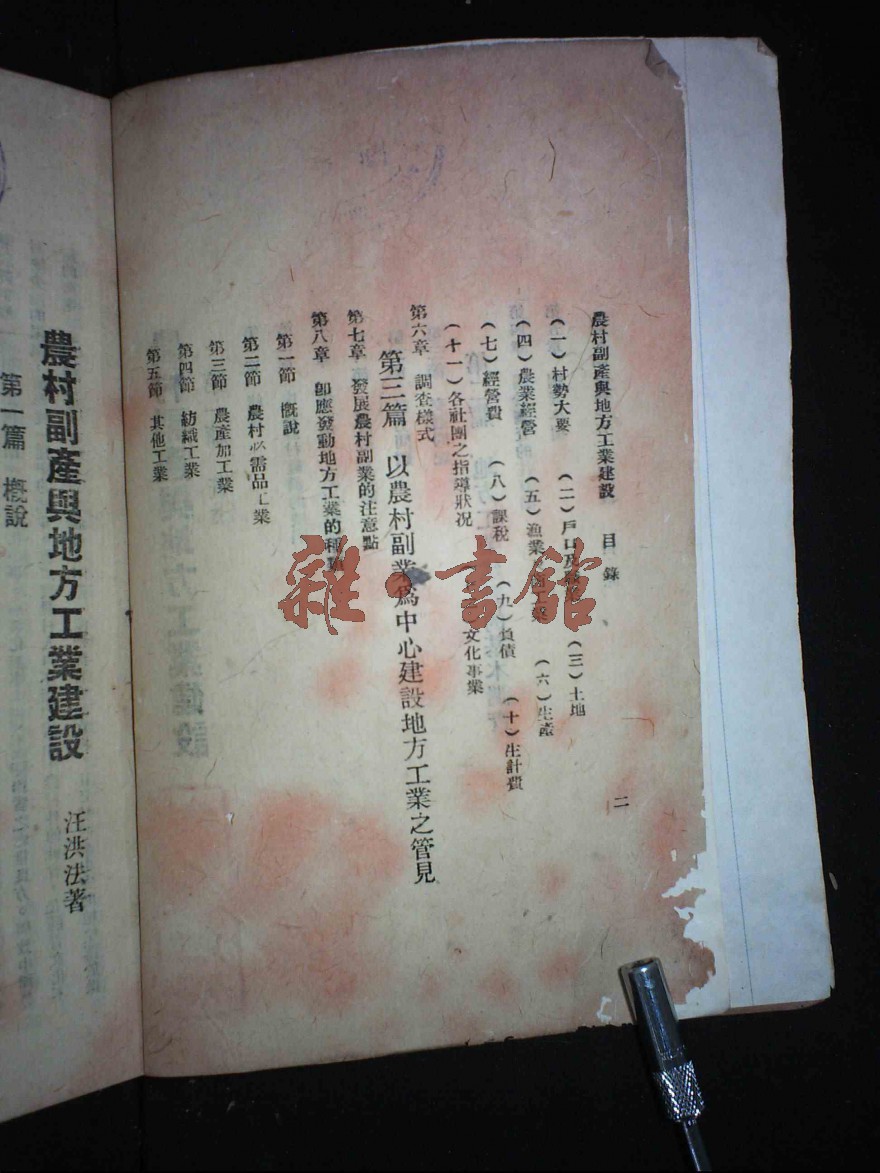 農村副產與地方工業建設 目錄 二
(一)村勢大要 (二)戶口及 (三)土地
(四)農業經營 (五)漁業 (六)生產
(七)經營費 (八)課稅 (九)負債 (十)生計費
(十一)各社團之指導狀况 文化事業
第六章 調查樣式
第三篇 以農村副業爲中心建設地方工業之管見
第七章 發展農村副業的注意點
第八章 卽應發動地方工業的種類
第一節 概說
第二節 農村必需品工業
第三節 農產加工業
第四節 紡織工業
第五節 其他工業
農村副產與地方工業建設
汪洪法著
第一篇 概說
雜·書館